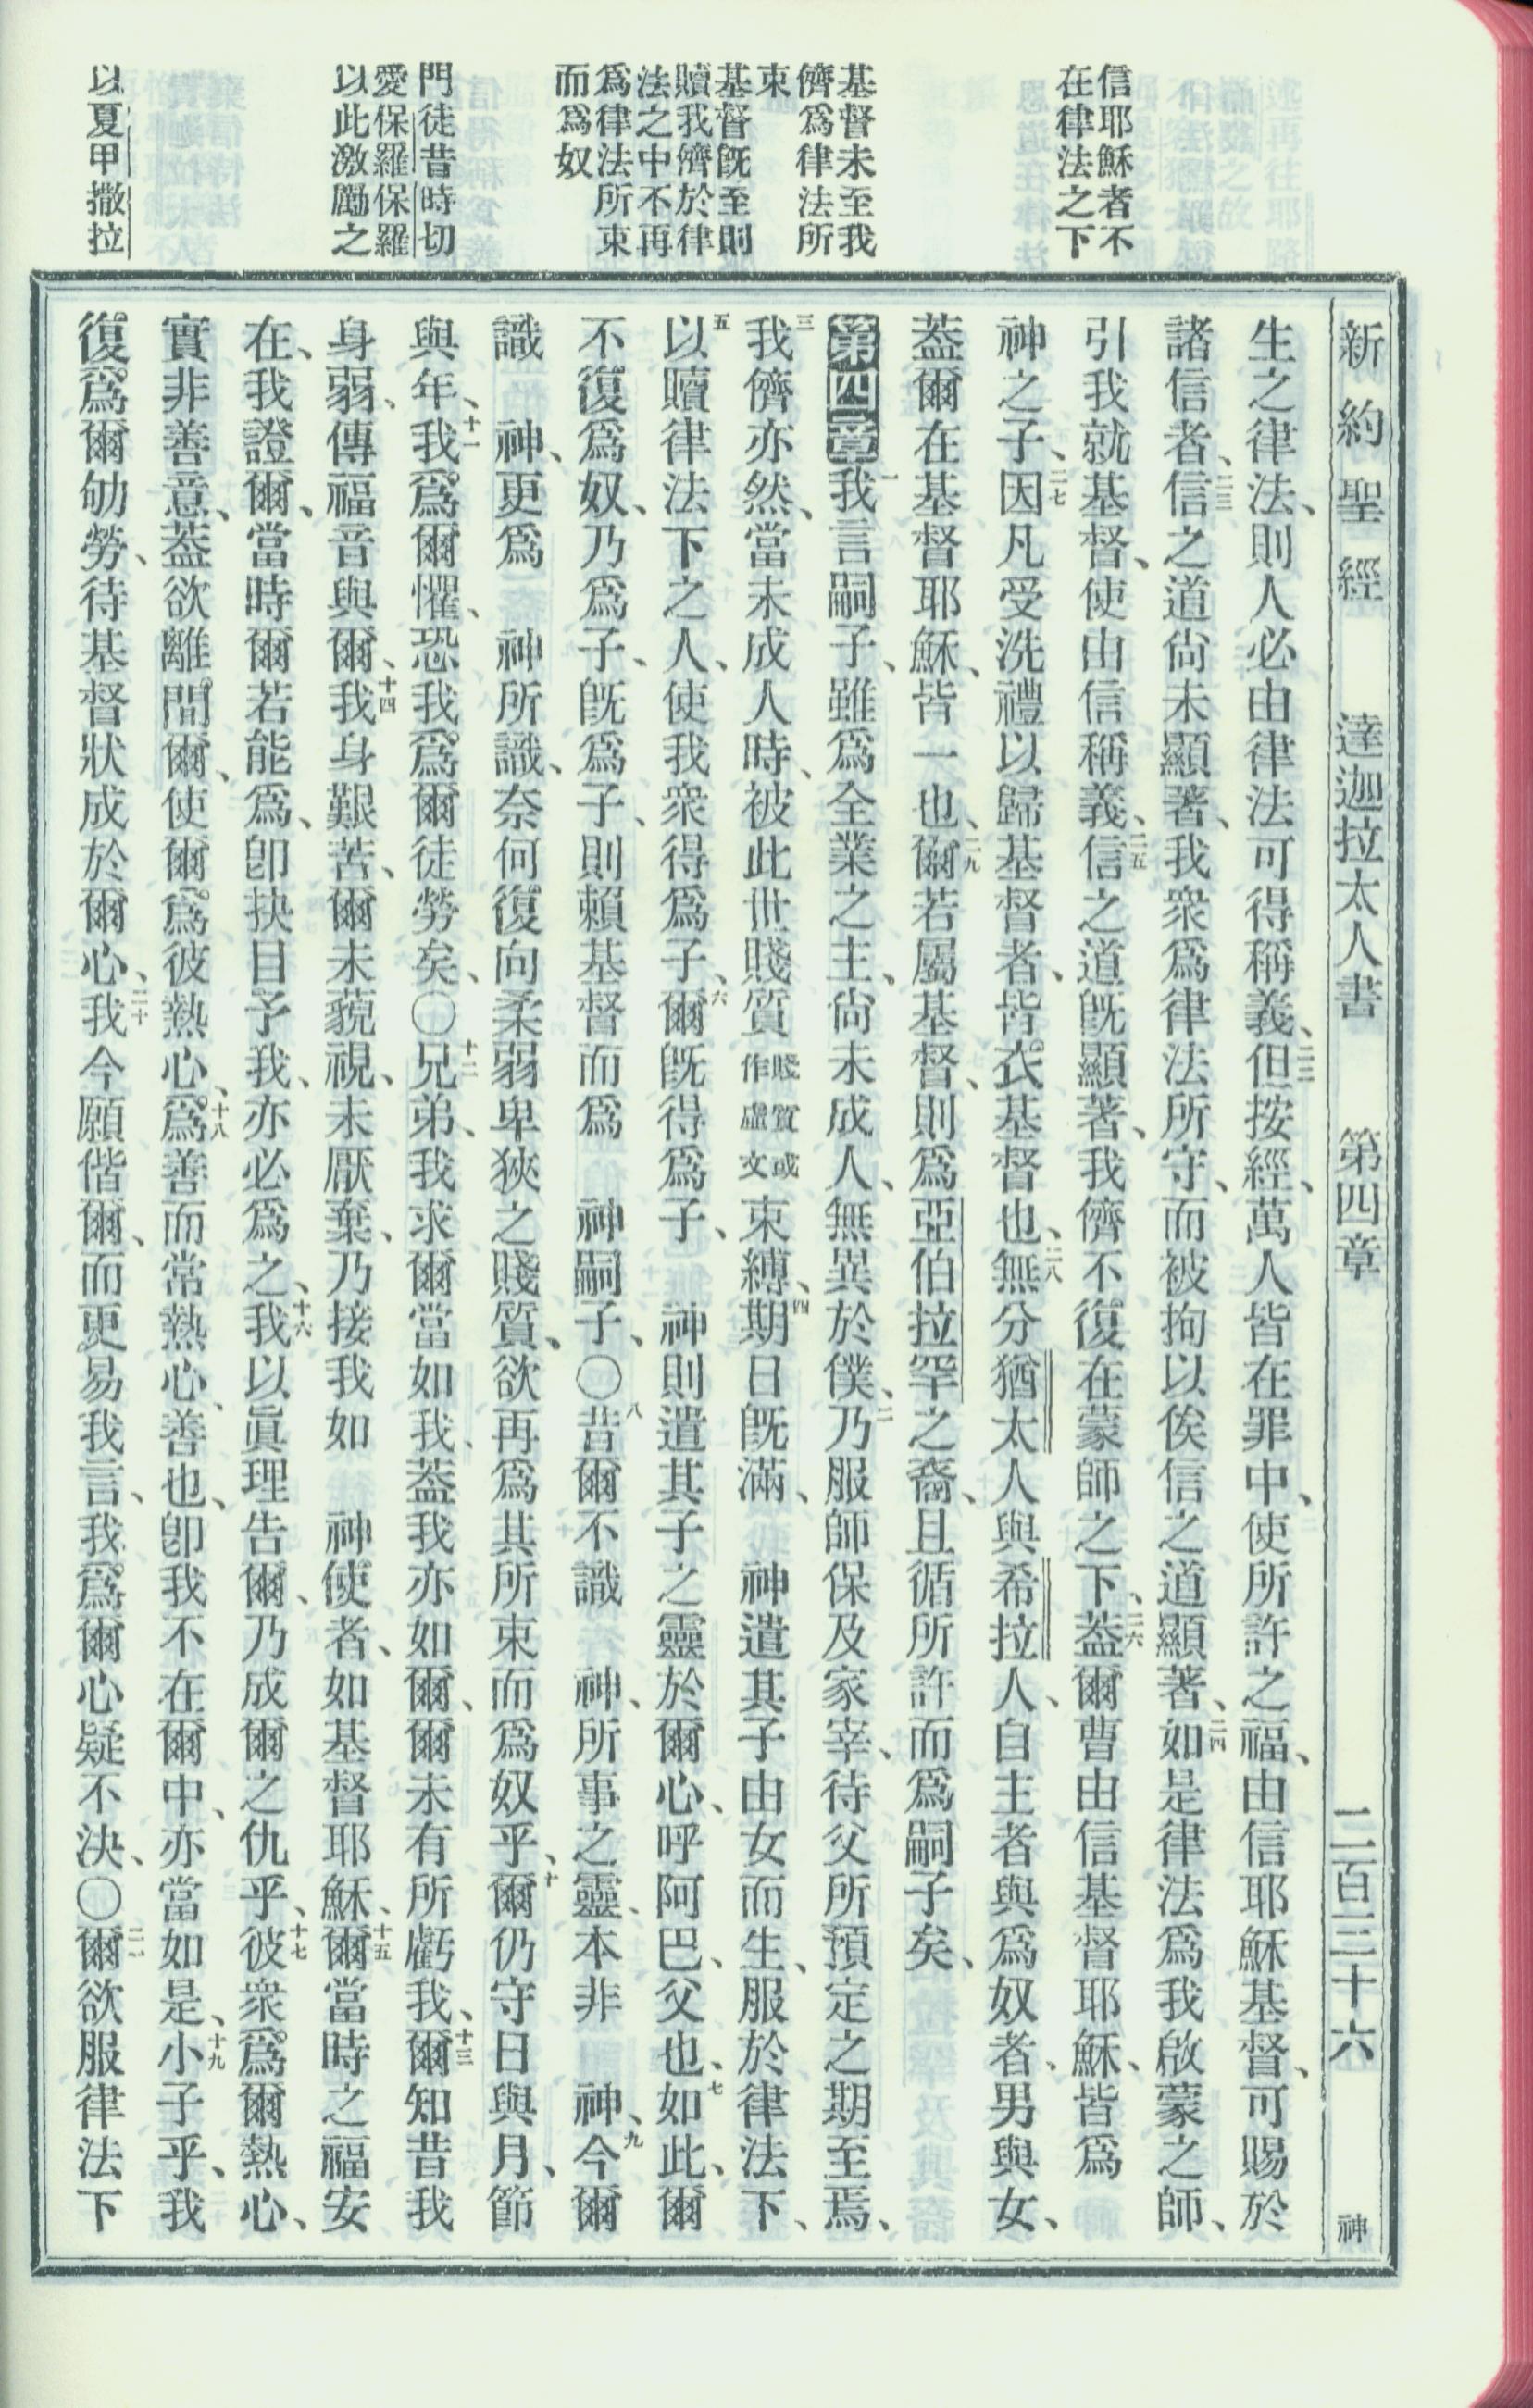 新約聖經 達迦拉太人書 第四章 二百三十六 神
信耶穌者不
在律法之下
基督未至我
儕爲律法所
束
基督旣至則
贖我儕於律
法之中不再
爲律法所束
而爲奴
門徒昔時切
愛保羅保羅
以此激勵之
以夏甲撒拉
生之律法、則人必由律法可得稱義、二二但按經、萬人皆在罪中、使所許之福、由信耶穌基督、可賜於
諸信者、二三信之道尙未顯著、我衆爲律法所守、而被拘以俟信之道顯著、二四如是律法爲我啟蒙之師、
引我就基督、使由信稱義、二五信之道旣顯著、我儕不復在蒙師之下、二六蓋爾曹由信基督耶穌、皆爲
神之子、二七因凡受洗禮以歸基督者、皆衣基督也、二八無分猶太人與希拉人、自主者與爲奴者、男與女、
蓋爾在基督耶穌、皆一也、二九爾若屬基督、則爲亞伯拉罕之裔、且循所許而爲嗣子矣、
第四章一我言嗣子、雖爲全業之主、尙未成人、無異於僕、二乃服師保及家宰、待父所預定之期至焉、
三我儕亦然、當未成人時、被此世賤質賤質或作虛文束縛、四期日旣滿、 神遣其子由女而生、服於律法下、
五以贖律法下之人、使我衆得爲子、六爾旣得爲子、 神則遣其子之靈於爾心、呼阿巴、父也、七如此、爾
不復爲奴、乃爲子、旣爲子、則賴基督而爲 神嗣子、〇八昔爾不識 神、所事之靈、本非 神、九今爾
識 神、更爲 神所識、奈何復向柔弱卑狹之賤質、欲再爲其所束而爲奴乎、十爾仍守日與月、節
與年、十一我爲爾懼、恐我爲爾徒勞矣、〇十二兄弟、我求爾當如我、蓋我亦如爾、爾未有所虧我、十三爾知昔我
身弱、傳福音與爾、十四我身艱苦、爾未藐視、未厭棄、乃接我如 神使者、如基督耶穌、十五爾當時之福安
在、我證爾、當時爾若能爲、卽抉目予我、亦必爲之、十六我以眞理告爾、乃成爾之仇乎、十七彼衆爲爾熱心、
實非善意、蓋欲離間爾、使爾爲彼熱心、十八爲善而常熱心、善也、卽我不在爾中、亦當如是、十九小子乎、我
復爲爾劬勞、待基督狀成於爾心、二十我今願偕爾、而更易我言、我爲爾心疑不決、〇二一爾欲服律法下